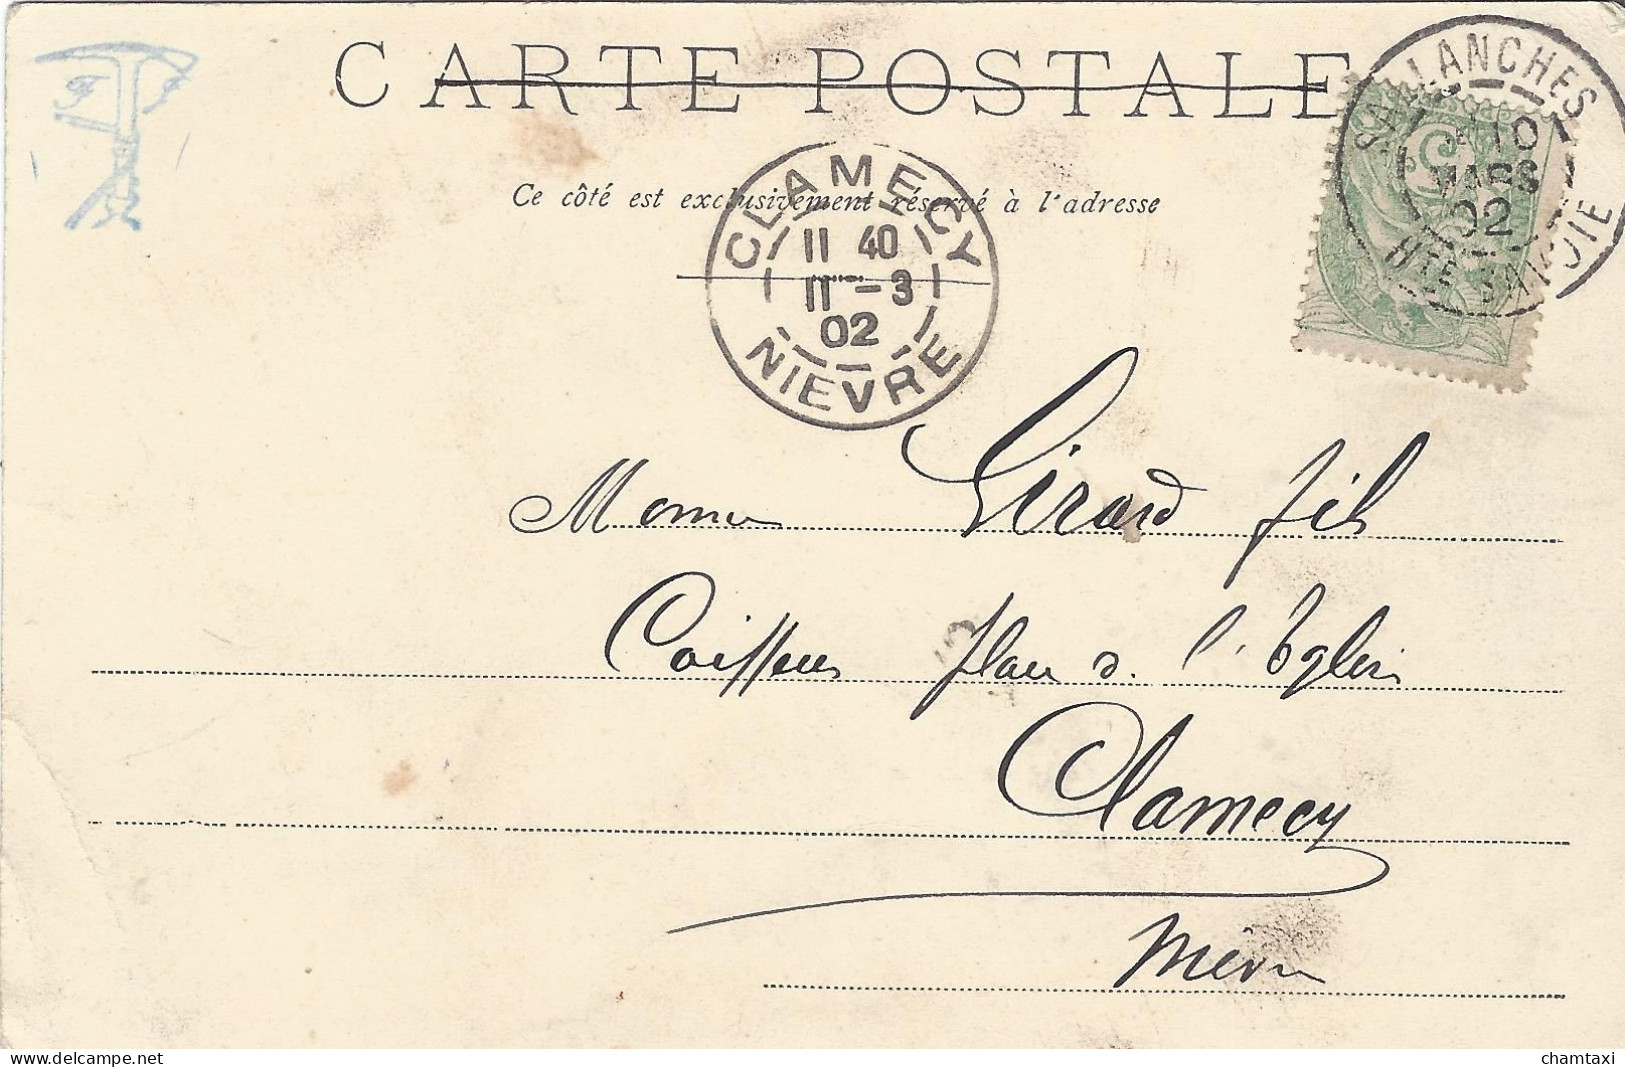 CARTE POSTALE
SALLANCHES
10
MARS
02
HTE SAVOIE
Ce côté est exclusivement réservé à l'adresse
CLAMECY
11 40
11 -3
02
NIEVRE
Girard fils
Coiffeur place de l'Eglise
Clamecy
Nièvre
chamtaxi